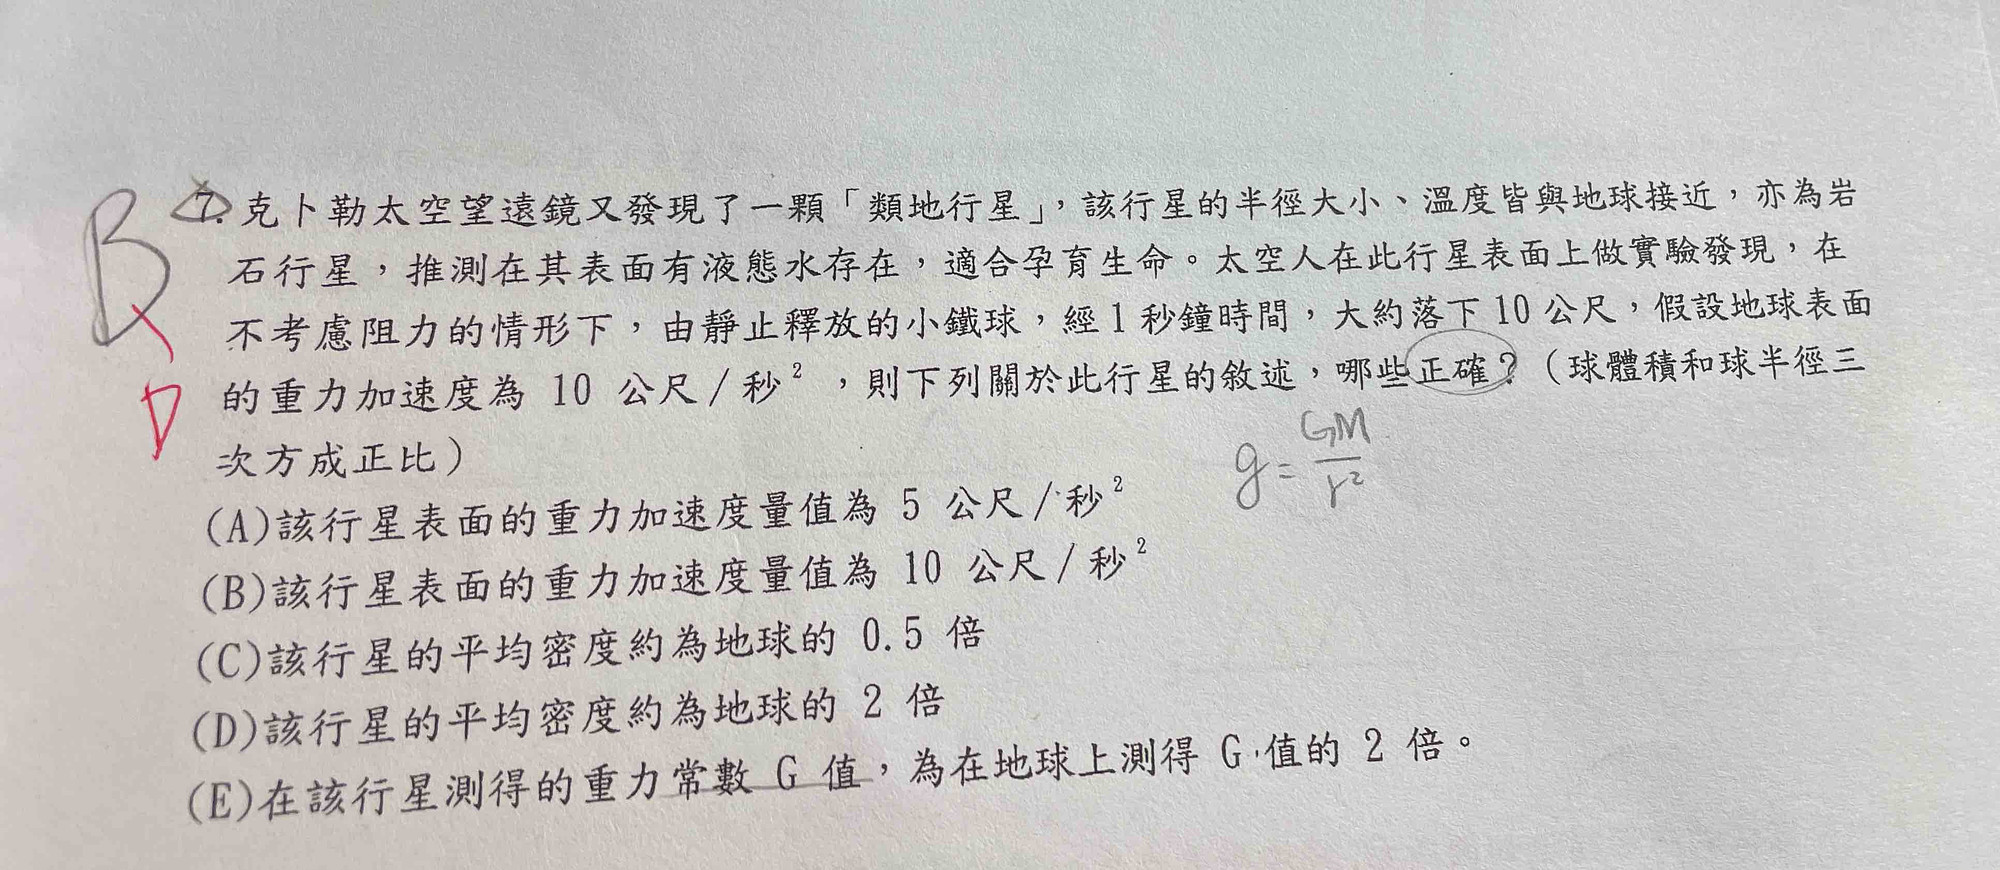 B、D
7.克卜勒太空望遠鏡又發現了一顆「類地行星」，該行星的半徑大小、溫度皆與地球接近，亦為岩
石行星，推測在其表面有液態水存在，適合孕育生命。太空人在此行星表面上做實驗發現，在
不考慮阻力的情形下，由靜止釋放的小鐵球，經1秒鐘時間，大約落下10公尺，假設地球表面
的重力加速度為 10 公尺/秒²，則下列關於此行星的敘述，哪些正確？（球體積和球半徑三
次方成正比）
g=GM/r²
(A)該行星表面的重力加速度量值為 5 公尺/秒²
(B)該行星表面的重力加速度量值為 10 公尺/秒²
(C)該行星的平均密度約為地球的 0.5 倍
(D)該行星的平均密度約為地球的 2 倍
(E)在該行星測得的重力常數 G 值，為在地球上測得 G 值的 2 倍。